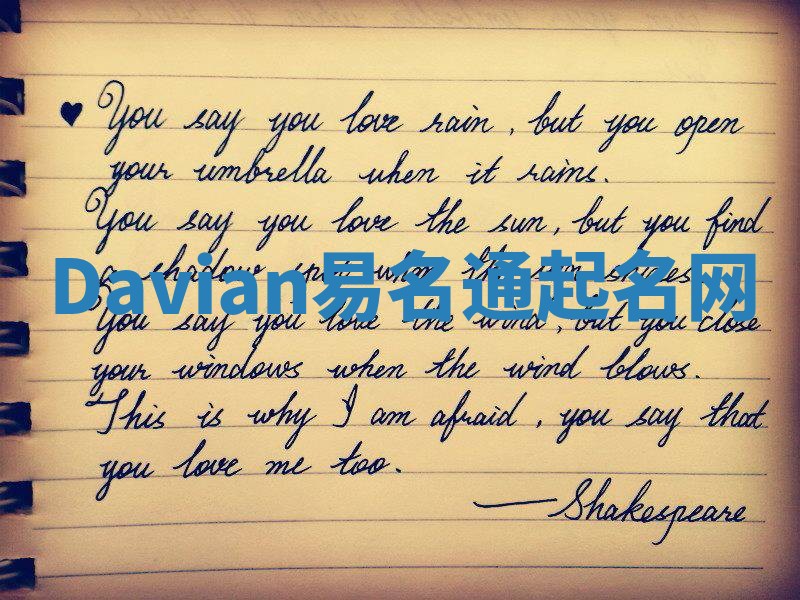 ♥ You say you love rain, but you open
your umbrella when it rains.
You say you love the sun, but you find
a shadow spot when the sun shines.
Davian易名通起名网
You say you love the wind, but you close
your windows when the wind blows.
This is why I am afraid, you say that
you love me too.
—Shakespeare